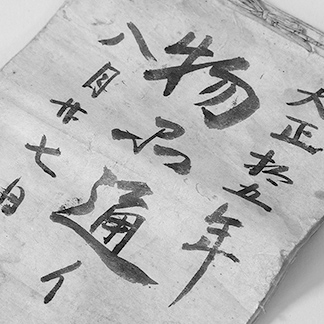 大正拾五年
物品通
八月廿七日